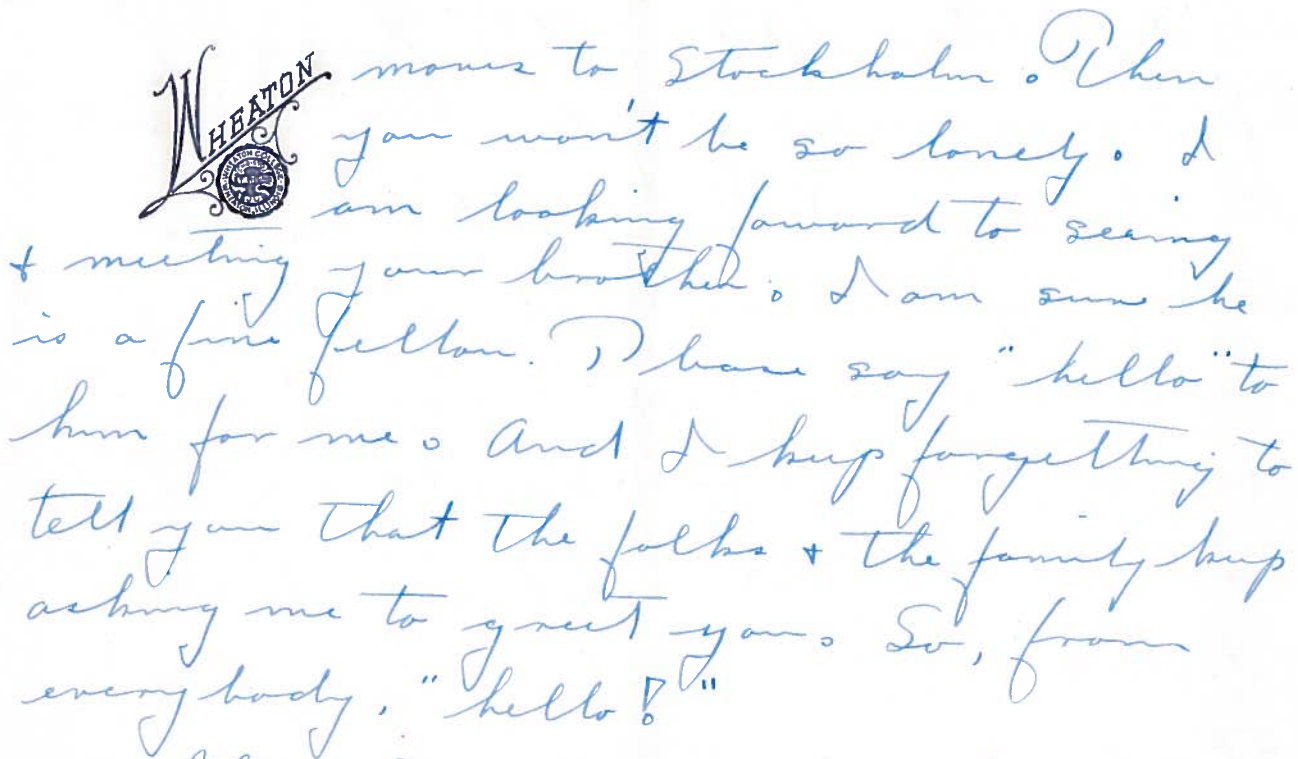 WHEATON
WHEATON COLLEGE
WHEATON, ILLINOIS
moves to Stockholm. Then
you won't be so lonely. I
am looking foward to seeing
+ meeting your brother. I am sure he
is a fine fellow. Please say "hello" to
him for me. And I keep forgetting to
tell you that the folks + the family keep
asking me to greet you. So, from
everybody, "hello!"